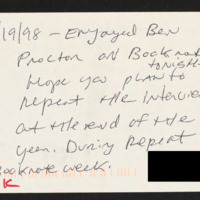 /19/98 - Enjoyed Ben
Procton on Booknote
tonight
Hope you plan to
repeat the interview
at the end of the
year. During Repeat
Booknote week.
K